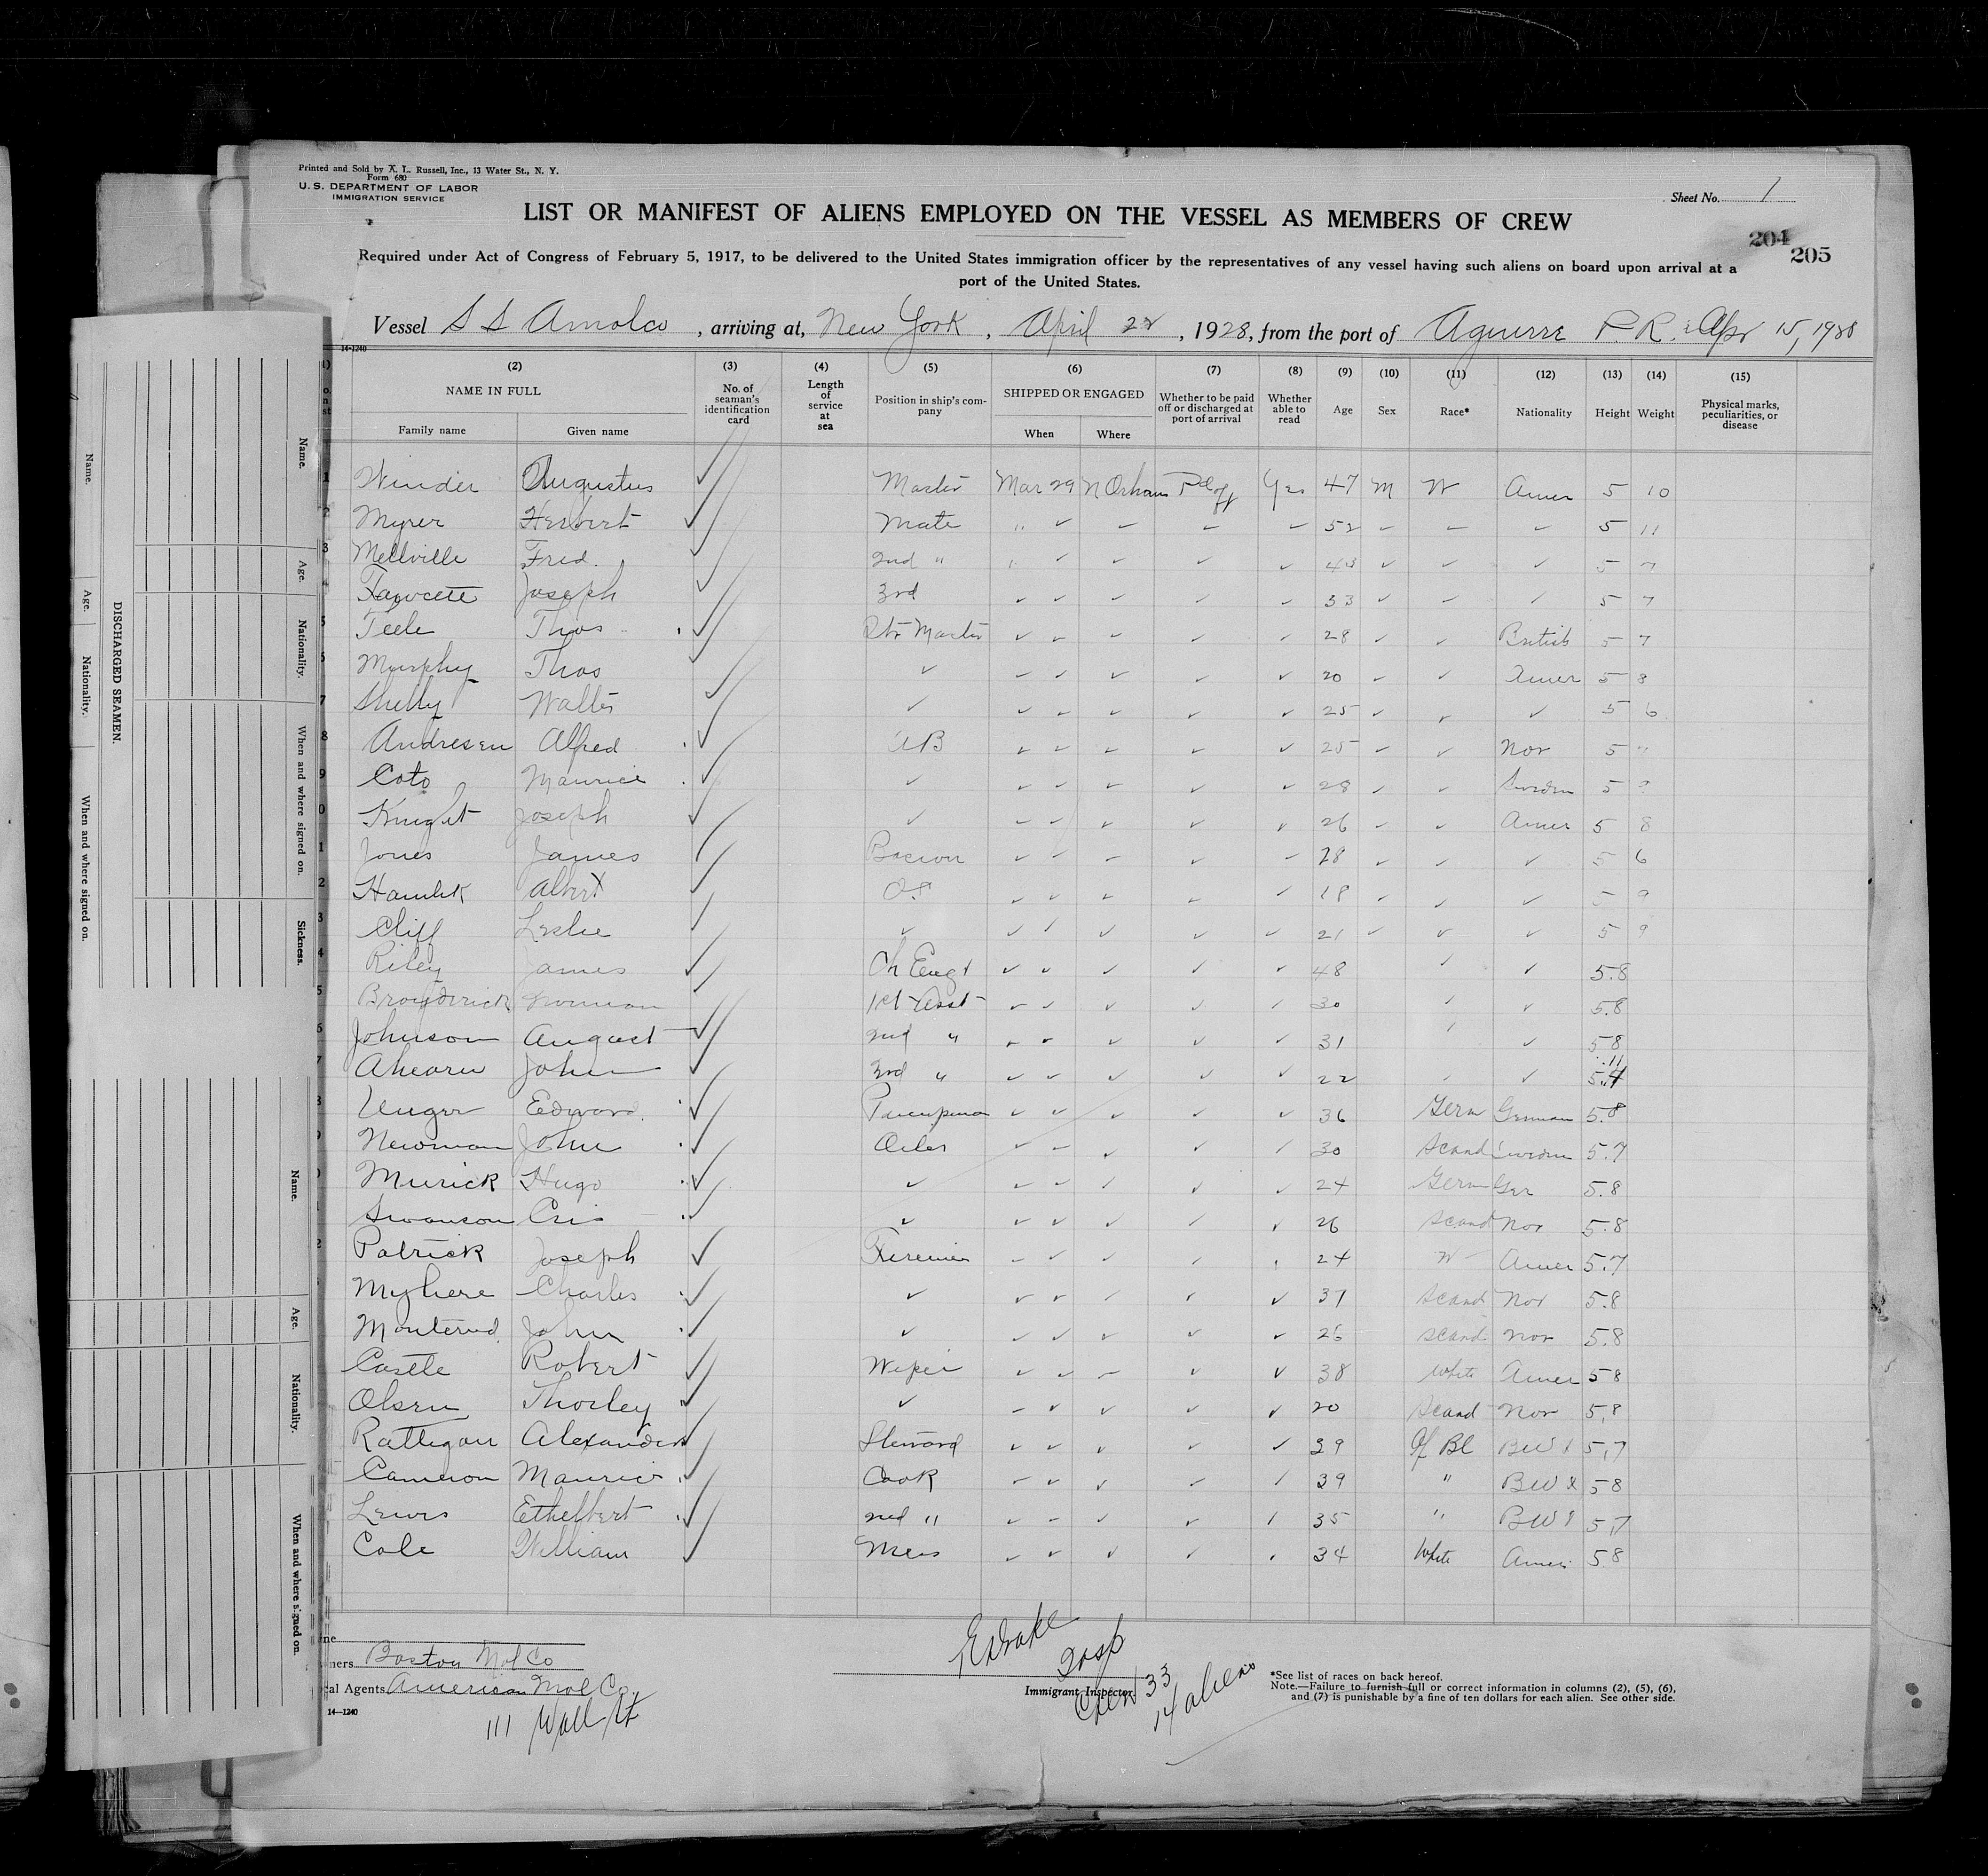 Printed and Sold by A. L. Russell, Inc., 13 Water St., N. Y.
Form 680
U. S. DEPARTMENT OF LABOR
IMMIGRATION SERVICE
Sheet No. 1
LIST OR MANIFEST OF ALIENS EMPLOYED ON THE VESSEL AS MEMBERS OF CREW
204
205
Required under Act of Congress of February 5, 1917, to be delivered to the United States immigration officer by the representatives of any vessel having such aliens on board upon arrival at a
port of the United States.
Vessel S S Amolco, arriving at, New York, April 22, 1928, from the port of Aguirre P. R. Apr 15, 1928
14-1240
(2) (3) (4) (5) (6) (7) (8) (9) (10) (11) (12) (13) (14) (15)
NAME IN FULL
Family name Given name
No. of seaman's identification card
Length of service at sea
Position in ship's company
SHIPPED OR ENGAGED
When Where
Whether to be paid off or discharged at port of arrival
Whether able to read
Age Sex Race* Nationality Height Weight
Physical marks, peculiarities, or disease
1 Winder Augustus Master Mar 29 N Orleans Pd off Yes 47 M W Amer 5 10
2 Myrer Herbert Mate " 52 5 11
3 Mellville Fred. 2nd " 43 5 7
Fawcette Joseph 3rd 33 5 7
5 Teele Thos Qtr Master 28 British 5 7
6 Murphy Thos 20 Amer 5 8
7 Shelly Walter 25 5 6
8 Andresen Alfred AB 25 Nor 5
9 Coto Maurice 28 Sweden 5 9
0 Knight Joseph 26 Amer 5 8
1 Jones James Boswn 28 5 6
2 Hamlik Albert OS 18 5 9
3 Cliff Leslie 21 5 9
4 Riley James Ch Engr 48 5.8
5 Brouderick Norman 1st Asst 30 5.8
6 Johnson August 2nd " 31 5 8
7 Ahearn John 3rd " 22 5.11
8 Unger Edward Pumpman 36 Germ German 5.8
9 Newman John Oiler 30 Scand Sweden 5.7
0 Murick Hugo 24 Germ Ger 5.8
1 Swanson Cris 26 Scand Nor 5.8
2 Patrick Joseph Firemen 24 W Amer 5.7
Myhere Charles 37 Scand Nor 5.8
Monterud John 26 Scand Nor 5.8
Castle Robert Wiper 38 White Amer 5 8
Olsen Thorley 20 Scand Nor 5.8
Rattigan Alexander Steward 39 Af Bl B W I 5.7
Cameron Maurice Cook 39 " B W I 5 8
Lewis Ethelbert 2nd " 35 " B W I 5.7
Cole William Mess 34 White Amer 5 8
Boston Mol Co
American Mol Co.
111 Wall St
14-1240
E Drake
Insp
Immigrant Inspector
Crew 33
14 aliens
*See list of races on back hereof.
Note.—Failure to furnish full or correct information in columns (2), (5), (6),
and (7) is punishable by a fine of ten dollars for each alien. See other side.
DISCHARGED SEAMEN.
Name. Age. Nationality. When and where signed on.
Name. Age. Nationality. When and where signed on. Sickness.
Name. Age. Nationality. When and where signed on.